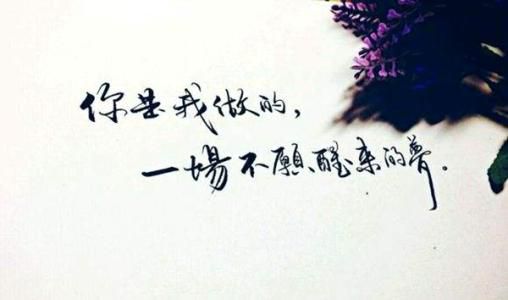 你是我做的，
一場不願醒来的夢.